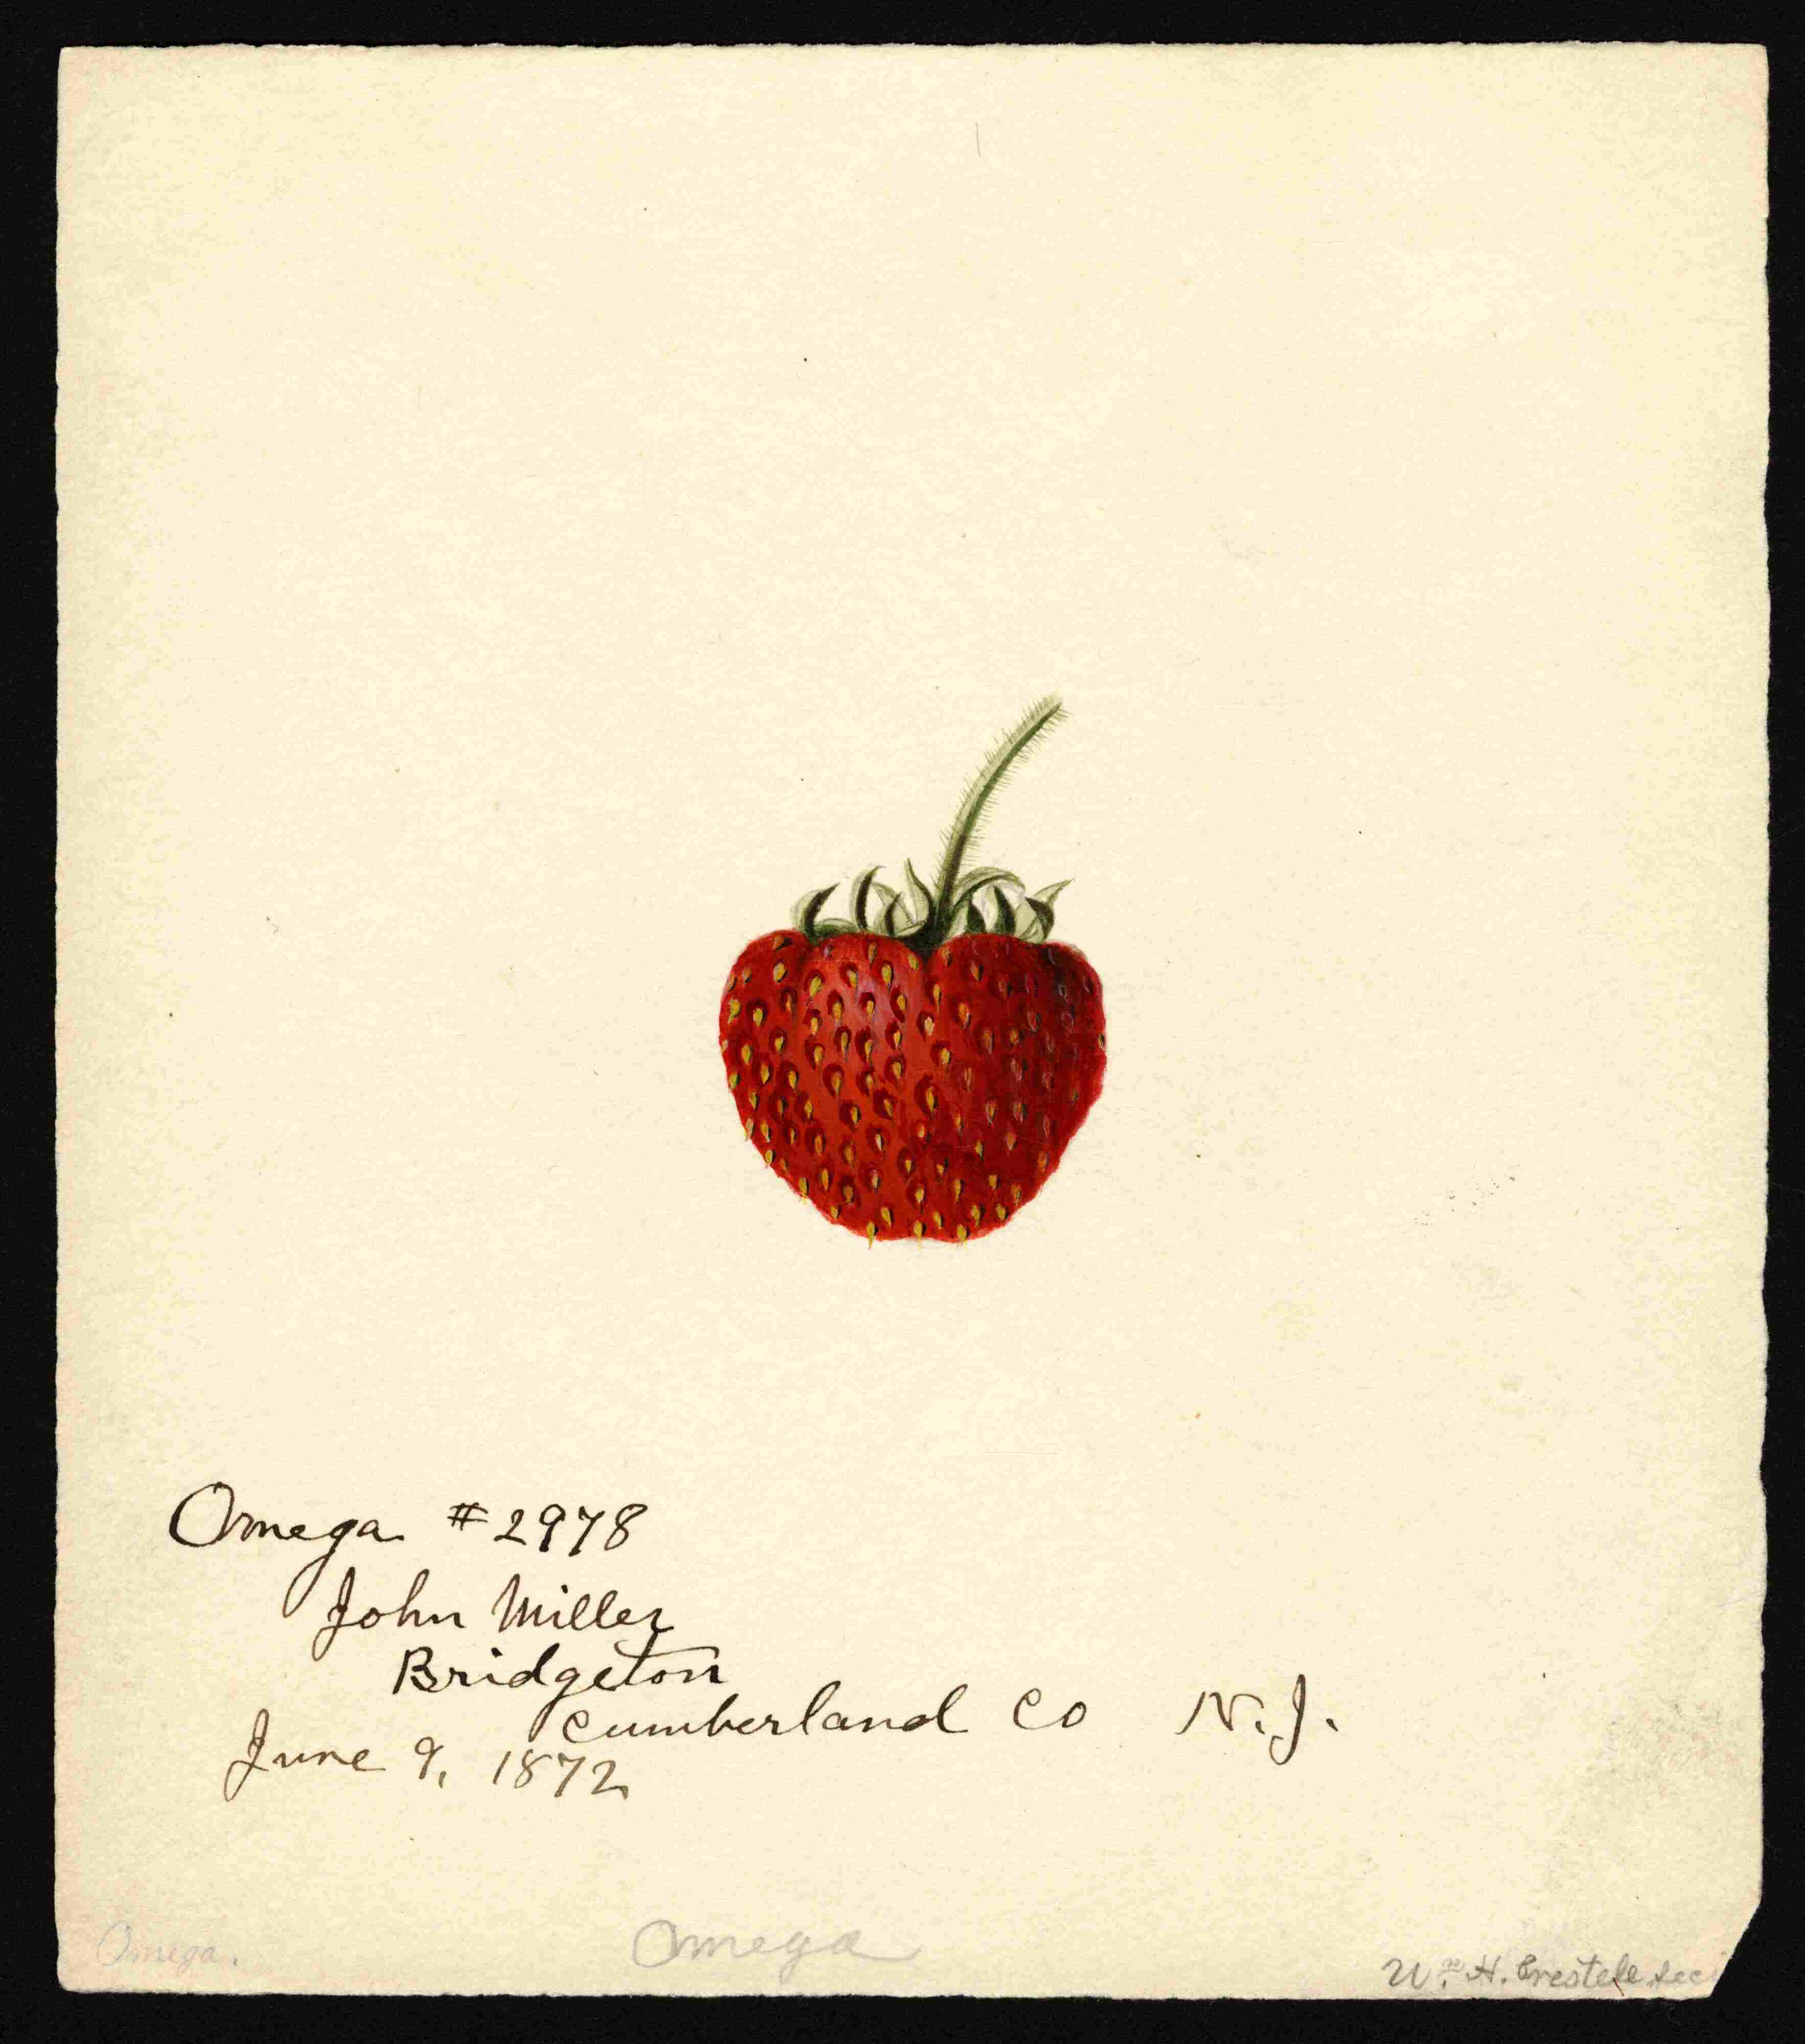 Omega #2978
John Miller
Bridgeton
Cumberland Co N.J.
June 9, 1872
Omega.
Omega
Wm. H. Prestele